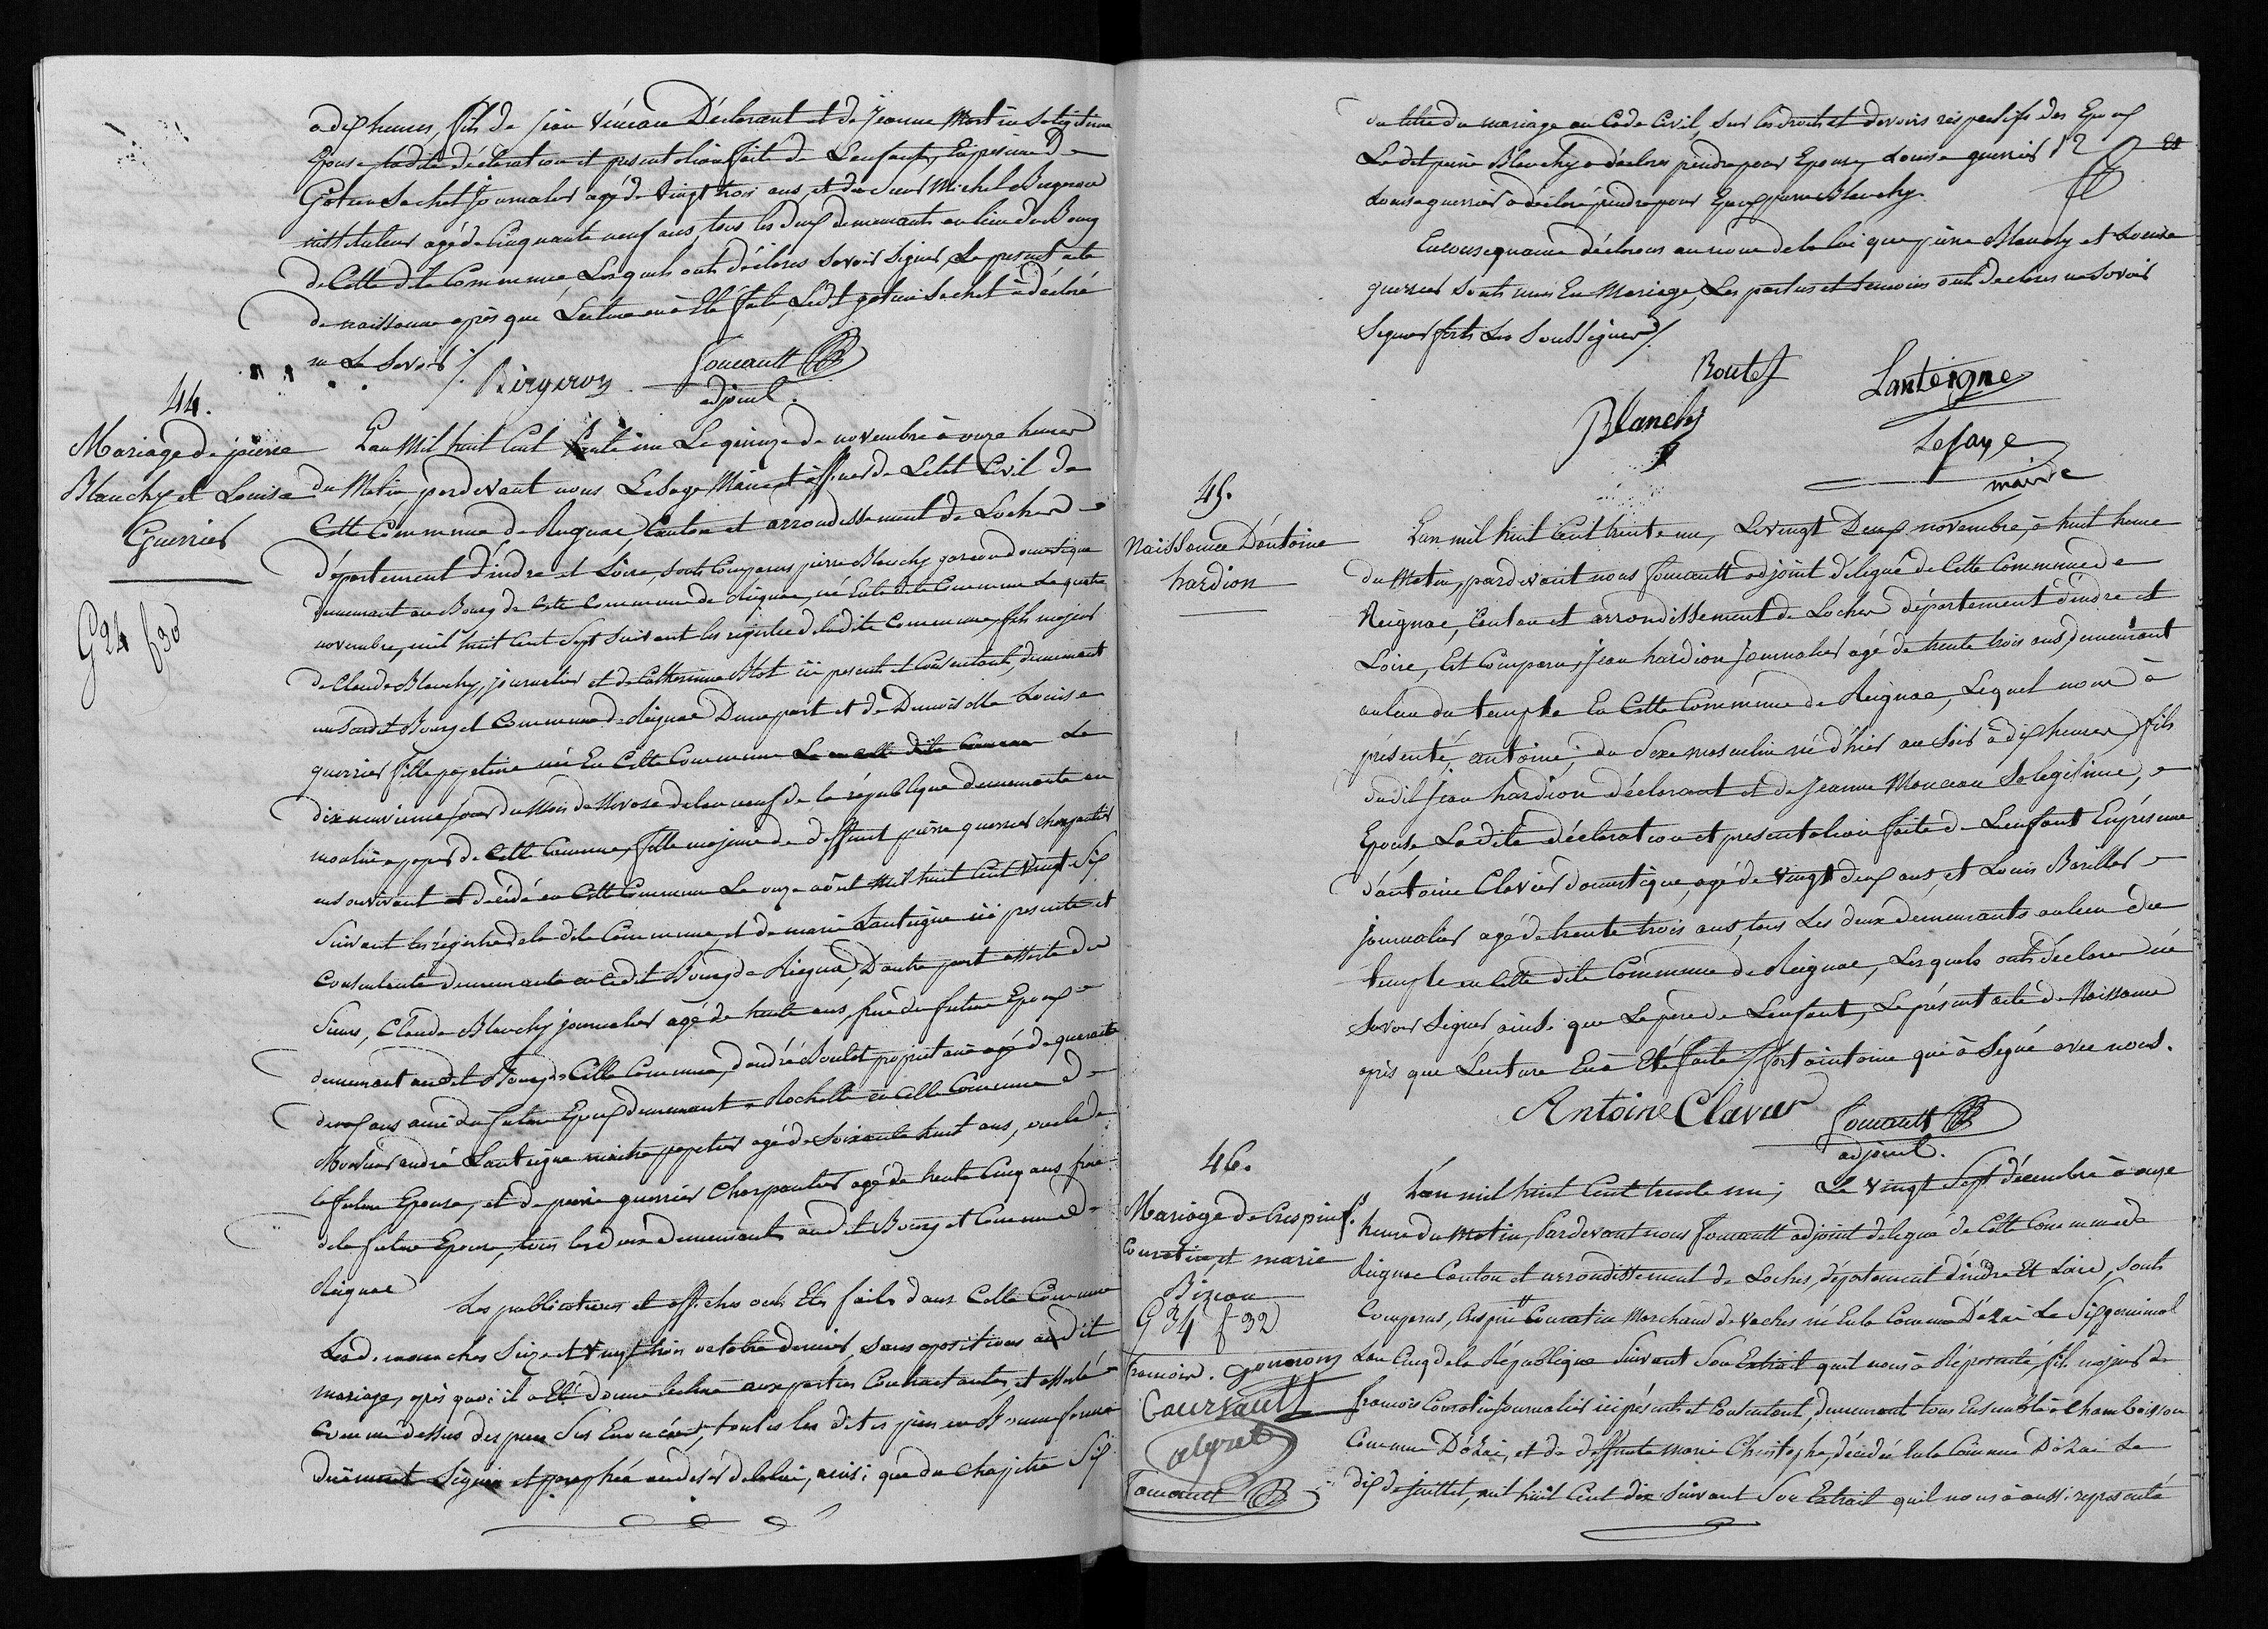 a dix heures, fils de jean Vénéau Déclarant et de Jeanne Martin sa légitime
Epouse ladite déclaration et présentation faite de L'enfant, En présence de
Gatien Sachet Journalier agé de Vingt trois ans, et du Sieur Michel Bergeron
instituteur agé de Cinquante neuf ans, tous les deux demeurants au lieu du Bourg
de Cette dite Commune, Lesquels onts déclarés Savoir Signer Le présent acte
de naissance après que Lecture en à Eté faite, Ledt gatien Sachet à déclaré
ne Le Savoir /.
Bergeron
Foucault
adjoint.
44.
Mariage de pierre
Blanchy et Louise
Guerrier
G 24 f 30
L'an Mil huit Cent trente un Le quinze de novembre à onze heures
du Matin, pardevant nous Lesage Maire et officier de L'etat Civil de
Cette Commune de Reignac Canton et arrondissement de Loches
département d'indre et Loire, Sonts Comparus pierre Blanchy garcon domestique
demeurant au Bourg de Cette Commune de Reignac, né En la dite Commune Le quatre
novembre, mil huit Cent Sept Suivant les registres de ladite Commune, fils majeur
de Claude Blanchy, journalier et de Catherinne Blot ici présents et Consentants, demeurant
au Susdit Bourg et Commune de Reignac D'une part et de Demoiselle Louise
guerrier fille papetiere née En Cette Commune Le
dix neuvieme jour du Mois de Nivose de l'an neuf de la république demeurante au
moulin a papier de Cette Commune, fille majeure de deffunt pierre guerrier charpentier
en son vivant et décédé en Cette Commune Le onze août Mil huit Cent Vingt Six
Suivant les régistres de la dite Commune, et de marie Lanteigne ici presente et
Consentante demeurante au dit Bourg de Reignac, D'autre part assisté des
Sieurs, Claude Blanchy journalier agé de trente ans, frere du futur Epoux
demeurant au dit Bourg de Cette Commune, d'andré Boutet propriétaire agé de quarante
deux ans ami du futur Epoux demeurant a Rochette en Cette Commune de
Monsieur andré Lanteigne maitre papetier agé de Soixante huit ans, oncle de
la future Epouse, et de pierre guerrier Charpentier agé de trente Cinq ans frere
de la future Epouse, tous les deux demeurants au dit Bourg et Commune de
Reignac
Les publications et affiches onts Etés faites dans Cette Commune
Les dimanches Seize et Vingt trois octobre dernier, Sans opositions au dit
mariage, après quoi il a Eté donné lecture aux parties Contractantes, et assistés
Comme dessus des pieces Sus Enoncées, toutes les dites pieces en Bonne forme
duement Signées et paraphées au desir de la loi, ainsi que du chapitre Six
du titre du mariage au Code Civil, Sur les droits et devoirs réspectifs des Epoux
Le dit pierre Blanchy a déclaré prendre pour Epouse, Louise guerrier Et
Louise guerrier a déclaré prendre pour Epoux pierre Blanchy.
En conséquance déclarons au nom de la loi que pierre Blanchy et Louise
guerrier Sonts unis En Mariage, Les parties et temoins onts déclarés ne Savoir
Signer forts Les Soussignés /.
Boutet
Lanteigne
Blanchy
Lesage
maire
45.
Naissance D'antoine
hardion
L'an mil huit Cent trente un, Le vingt Deux novembre, à huit heure
du Matin, pardevant nous foucault adjoint délégué de Cette Commune de
Reignac, Canton et arrondissement de Loches département d'indre et
Loire, Est Comparu, Jean hardion journalier agé de trente trois ans, demeurant
au lieu du temple En Cette Commune de Reignac, Lequel nous à
présenté, antoine, du Sexe masculin né d'hier au Soir à dix heures, fils
dudit Jean hardion déclarant et de Jeanne Monceau Sa légitime,
Epouse, Ladite déclaration et présentation faite de L'enfant En présence
d'antoine Clavier domestique, agé de vingt deux ans, et Louis Bariller
journalier agé de trente trois ans, tous Les deux demeurants au lieu du
temple en Cette dite Commune de Reignac, Lesquels onts déclarés né
Savoir Signer, ainsi que Le père de L'enfant, Le présent acte de Naissance
après que Lecture En à Eté faite, fort aintoine qui à Signé avec nous.
Antoine Clavier
Foucault
adjoint.
46.
Mariage de Crespin f.
Couratin, et marie
Bizeau
G 34 f 32
L'an mil huit Cent trente un, Le vingt Sept décembre à onze
heure du Matin, Pardevant nous foucault adjoint délegué de Cette Commune de
Reignac Canton et arrondissement de Loches, département d'indre Et Loire, Sonts
Comparus, Crespin Couratin Marchand de Vaches né En la Commune D'azai Le Six germinal
L'an Cinq de la République Suivant Son Extrait qu'il nous à Réprésenté, fils majeur de
francois Couratin Journalier ici présents et Consentant, demeurant tous Ensemble à Chambaisson
Commune D'azai, et de deffunte Marie Christophe, décédée En la Commune D'azai Le
dix de Juillet, mil huit Cent dix Suivant Son Extrait qu'il nous à aussi représenté
Caursault
Foucault